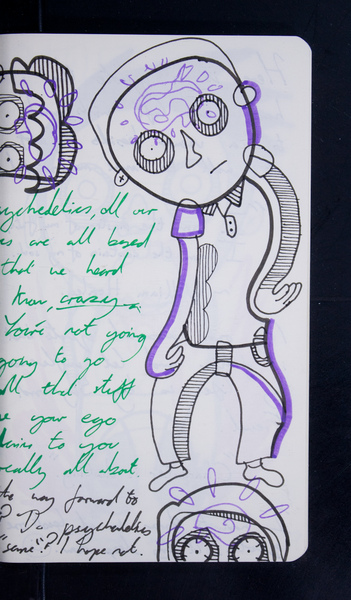 ychedelics, all our
es are all based
that we heard
know, crazy
You're not going
going to go
all that stuff
e your ego
to you
really all about.
the way forward to
? Do psychedelics
"same"? I hope not.